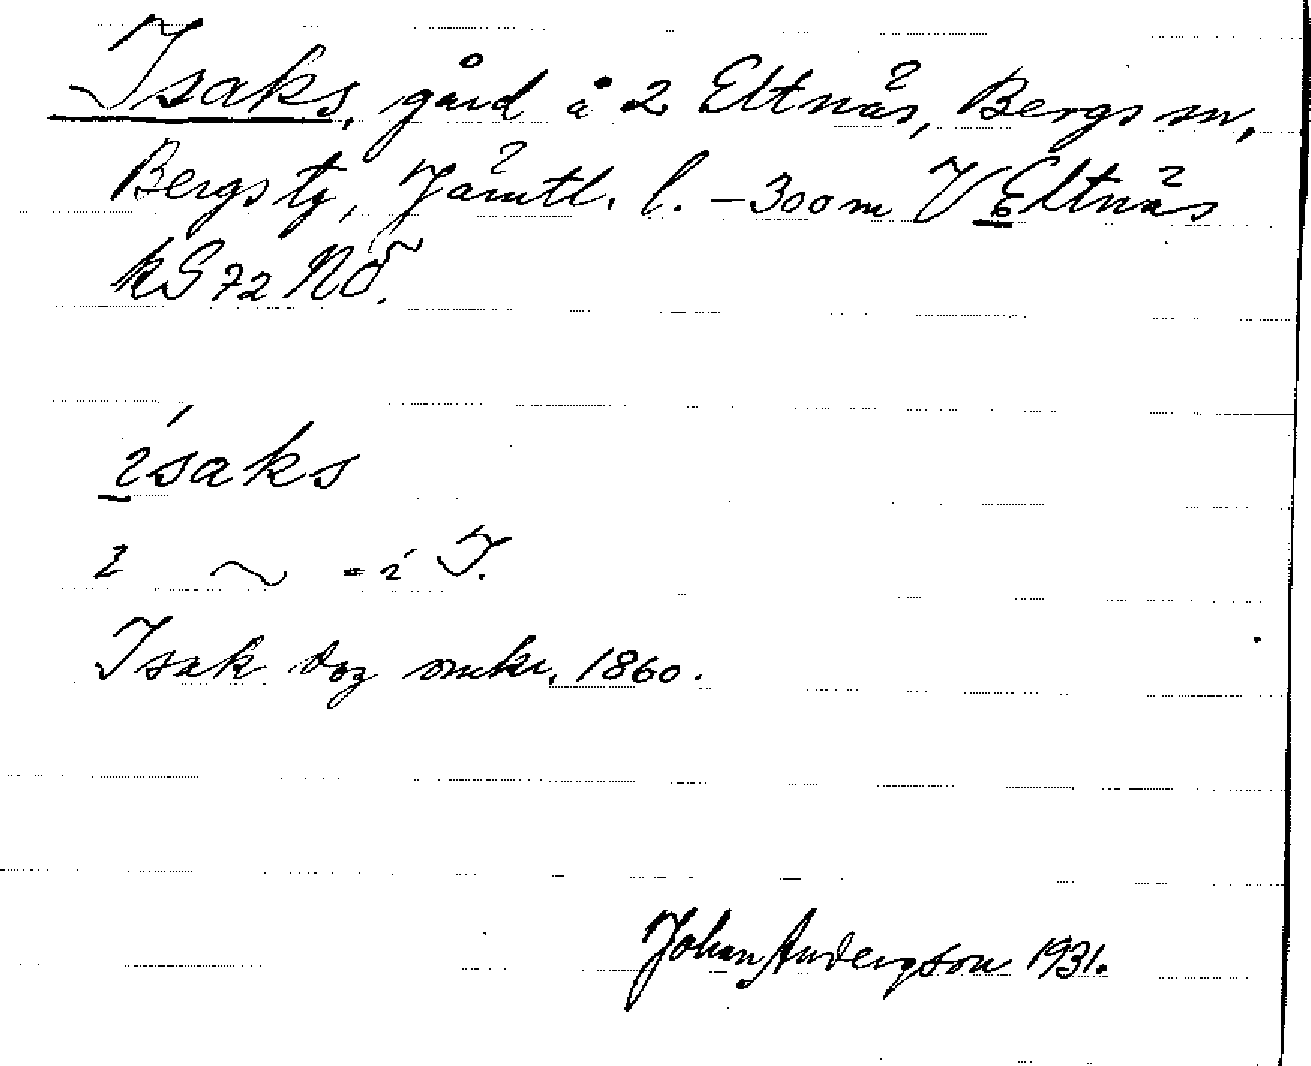 Isaks, gård å 2 Eltnäs, Bergs sn,
Bergs tg, Jämtl. l. – 300 m V Eltnäs
kS 72 NÖ.
ísaks
i ~ - í I.
Isak dog omkr. 1860.
Johan Andersson 1931.